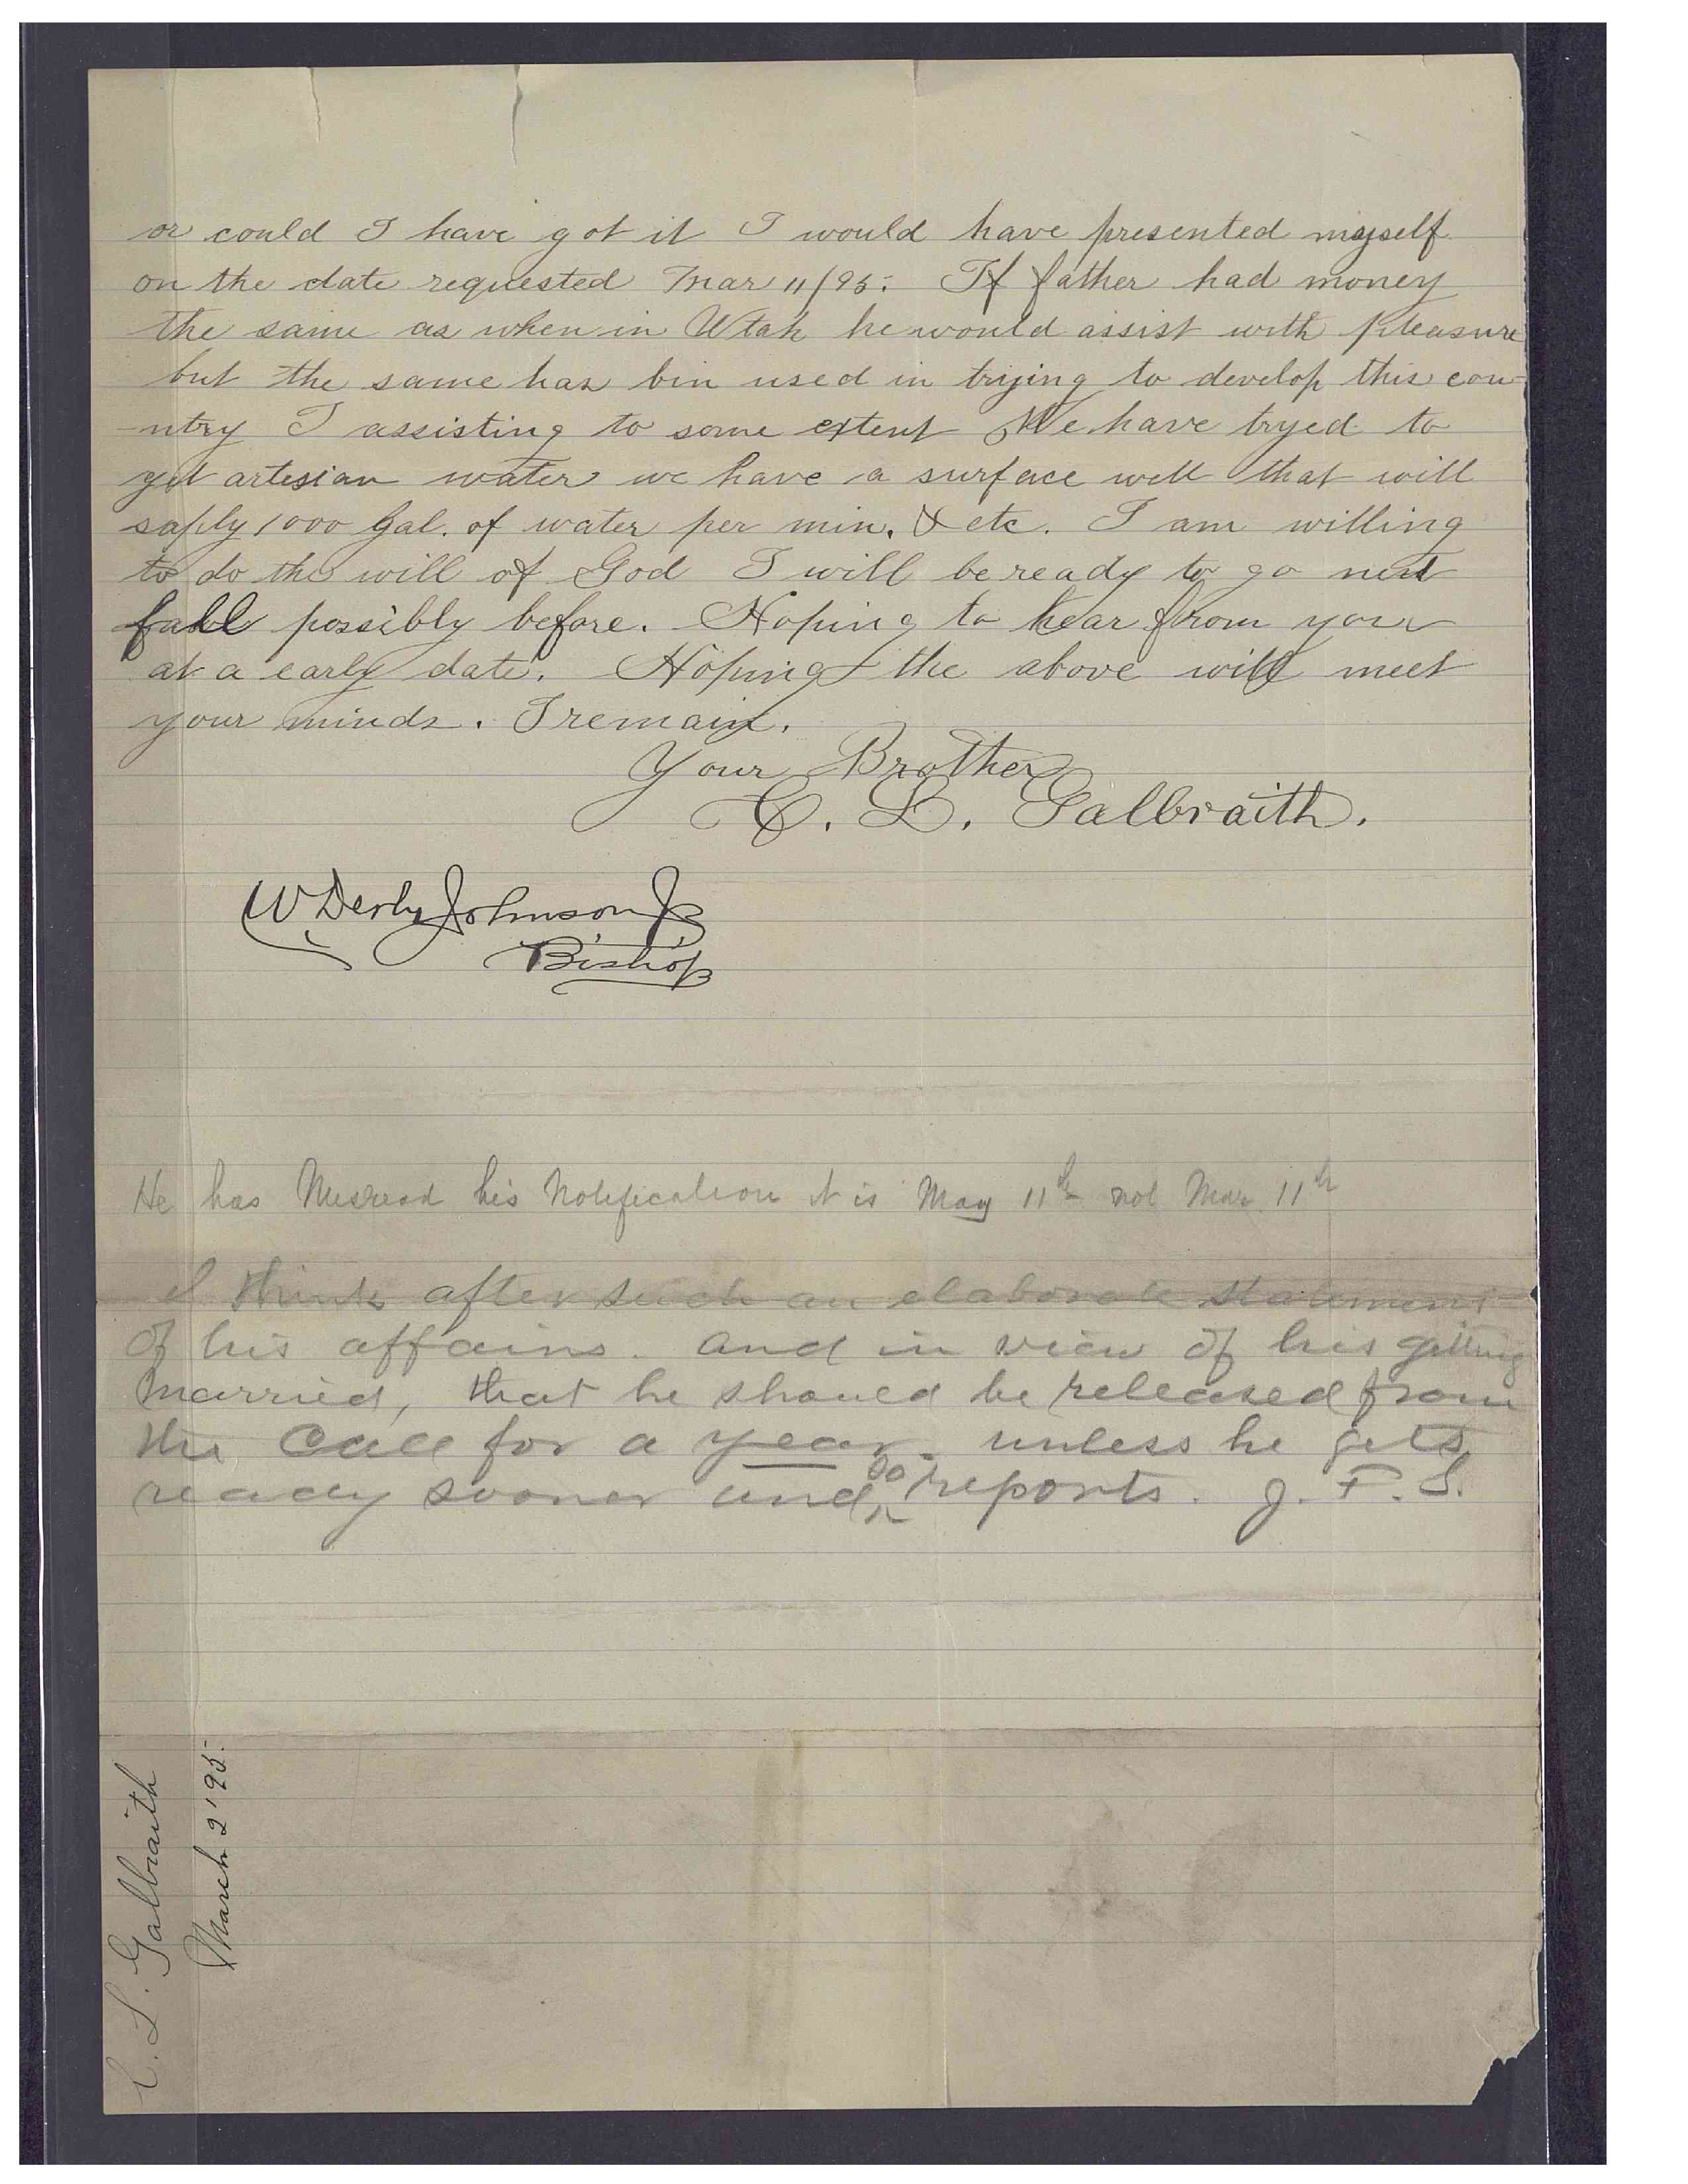 or could I have got it I would have presented myself
on the date requested Mar 11/95. If father had money
the same as when in Utah he would assist with pleasure
but the same has bin used in trying to develop this cou-
-ntry I assisting to some extent We have tryed to
get artesian water we have a surface well that will
saply 1000 Gal. of water per min. & etc. I am willing
to do the will of God I will be ready to go next
fall possibly before. Hoping to hear from you
at a early date. Hoping the above will meet
your minds. I remain.
Your Brother
C. L. Galbraith.
W Derby Johnson Jr
Bishop
He has Misread his Notification it is May 11th not Mar 11th
I think after such an elaborate statement
of his affairs. and in view of his getting
married, that he should be released from
the Call for a year. unless he gets
ready sooner and so reports. J. F. S.
C. L. Galbraith
March 2 '95.